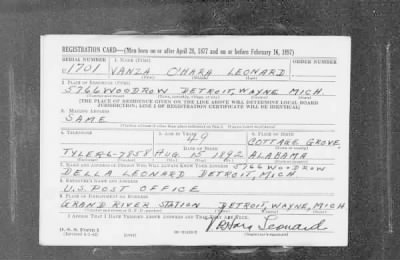 REGISTRATION CARD—(Men born on or after April 28, 1877 and on or before February 16, 1897)
SERIAL NUMBER 1. NAME (Print) ORDER NUMBER
U 1701 VANZA O'HARA LEONARD
2. PLACE OF RESIDENCE (Print)
5766 WOODROW DETROIT, WAYNE MICH.
[THE PLACE OF RESIDENCE GIVEN ON THE LINE ABOVE WILL DETERMINE LOCAL BOARD
JURISDICTION; LINE 2 OF REGISTRATION CERTIFICATE WILL BE IDENTICAL]
3. MAILING ADDRESS
SAME
4. TELEPHONE 5. AGE IN YEARS 6. PLACE OF BIRTH
49 COTTAGE GROVE,
TYLER-6-7858 AUG 15 1892 ALABAMA
7. NAME AND ADDRESS OF PERSON WHO WILL ALWAYS KNOW YOUR ADDRESS 5766 WOODROW
DELLA LEONARD DETROIT, MICH
8. EMPLOYER'S NAME AND ADDRESS
U.S. POST OFFICE
9. PLACE OF EMPLOYMENT OR BUSINESS
GRAND RIVER STATION DETROIT, WAYNE, MICH
I AFFIRM THAT I HAVE VERIFIED ABOVE ANSWERS AND THAT THEY ARE TRUE.
D. S. S. Form 1
O'Hara Leonard